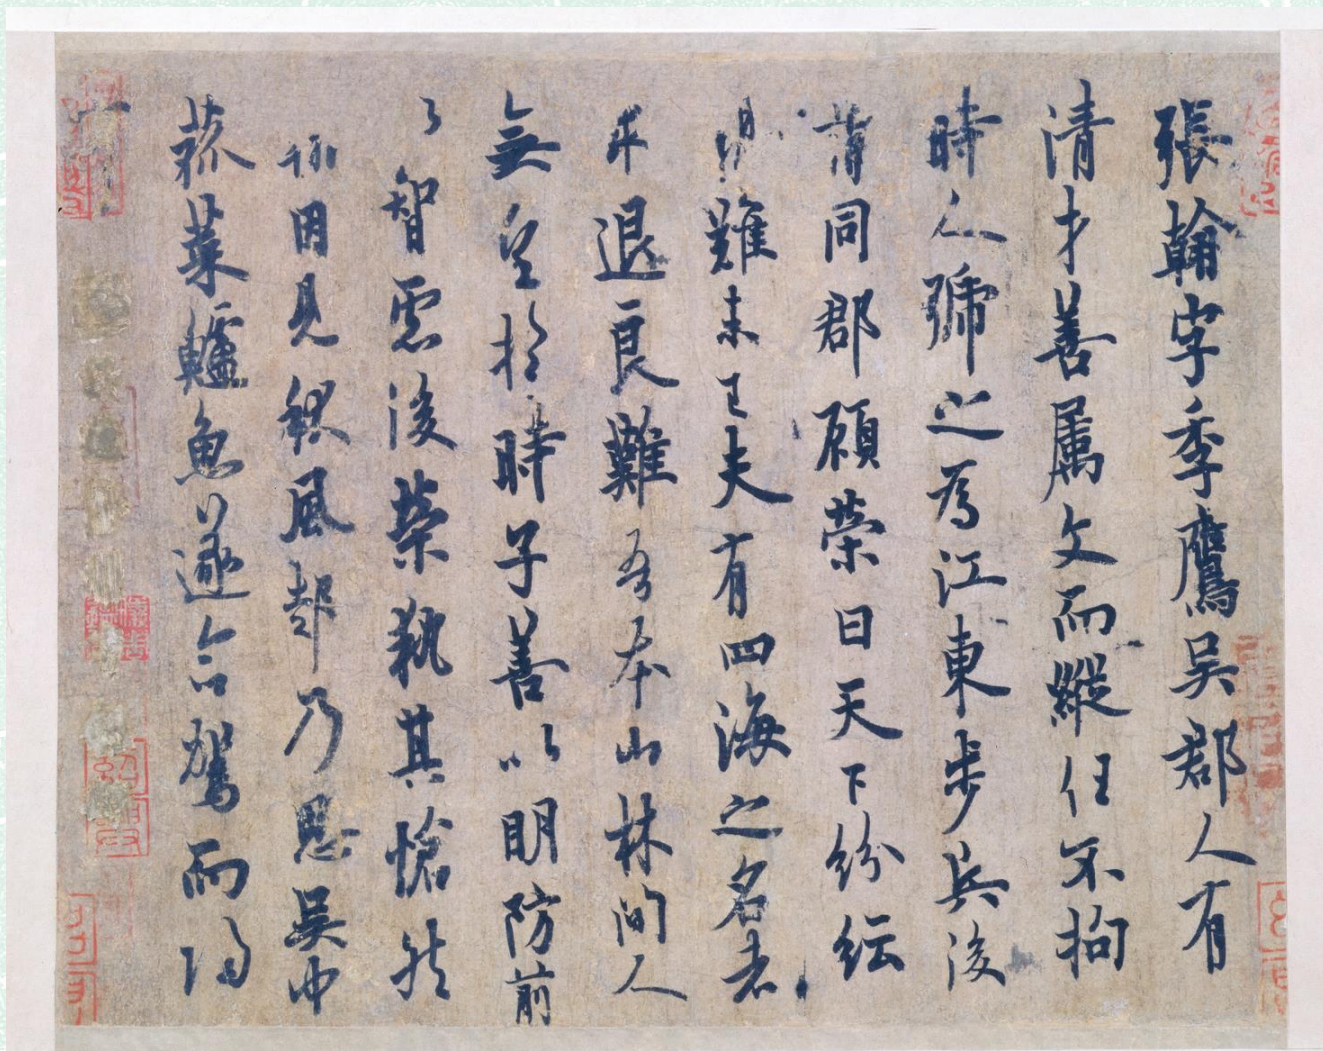 張翰字季鷹吳郡人有
清才善屬文而縱任不拘
時人號之為江東步兵後
同郡顧榮曰天下紛紜
難未已夫有四海之名者
求退良難吾本山林間人
無望於時子善以明防前
以智慮後榮執其愴然
因見秋風起乃思吳中
菰菜鱸魚遂命駕而歸